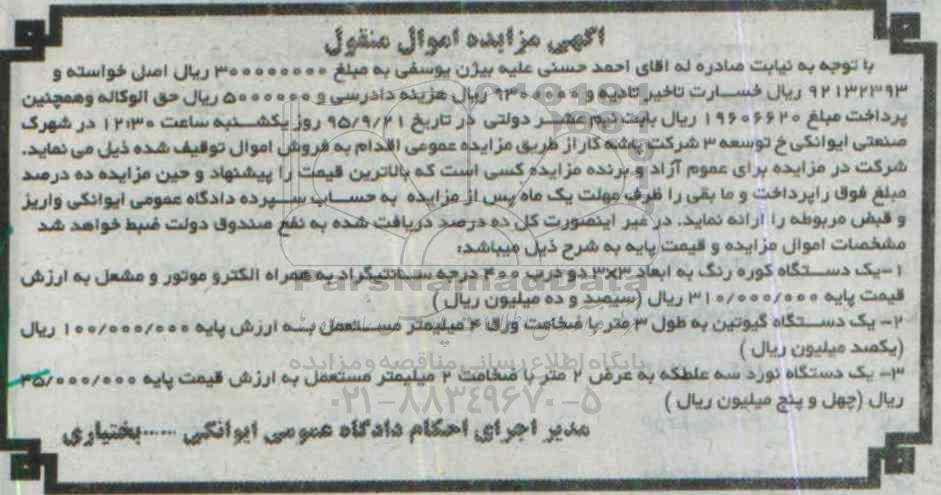 آگهی مزایده اموال منقول
با توجه به نیابت صادره له آقای احمد حسنی علیه بیژن یوسفی به مبلغ ۳۰۰۰۰۰۰۰۰ ریال اصل خواسته و
۹۲۱۳۲۳۹۳ ریال خسارت تاخیر تادیه و ۹۳۰۰۰۰۰ ریال هزینه دادرسی و ۵۰۰۰۰۰۰ ریال حق الوکاله وهمچنین
پرداخت مبلغ ۱۹۶۰۶۶۲۰ ریال بابت نیم عشر دولتی در تاریخ ۹۵/۹/۲۱ روز یکشنبه ساعت ۱۲:۳۰ در شهرک
صنعتی ایوانکی خ توسعه ۳ شرکت پاشه کار از طریق مزایده عمومی اقدام به فروش اموال توقیف شده ذیل می نماید.
شرکت در مزایده برای عموم آزاد و برنده مزایده کسی است که بالاترین قیمت را پیشنهاد و حین مزایده ده درصد
مبلغ فوق راپرداخت و ما بقی را ظرف مهلت یک ماه پس از مزایده به حساب سپرده دادگاه عمومی ایوانکی واریز
و قبض مربوطه را ارائه نماید. در غیر اینصورت کل ده درصد دریافت شده به نفع صندوق دولت ضبط خواهد شد
مشخصات اموال مزایده و قیمت پایه به شرح ذیل میباشد:
۱-یک دستگاه کوره رنگ به ابعاد ۳x۳ دو درب ۴۰۰ درجه سانتیگراد به همراه الکترو موتور و مشعل به ارزش
قیمت پایه ۳۱۰/۰۰۰/۰۰۰ ریال (سیصد و ده میلیون ریال )
۲- یک دستگاه گیوتین به طول ۳ متر با ضخامت ورق ۴ میلیمتر مستعمل به ارزش پایه ۱۰۰/۰۰۰/۰۰۰ ریال
(یکصد میلیون ریال )
۳- یک دستگاه نورد سه غلطکه به عرض ۲ متر با ضخامت ۲ میلیمتر مستعمل به ارزش قیمت پایه ۴۵/۰۰۰/۰۰۰
ریال (چهل و پنج میلیون ریال )
مدیر اجرای احکام دادگاه عمومی ایوانکی ......بختیاری
ParsNamadData
پایگاه اطلاع رسانی مناقصه و مزایده
۰۲۱-۸۸۳۴۹۶۷۰-۵